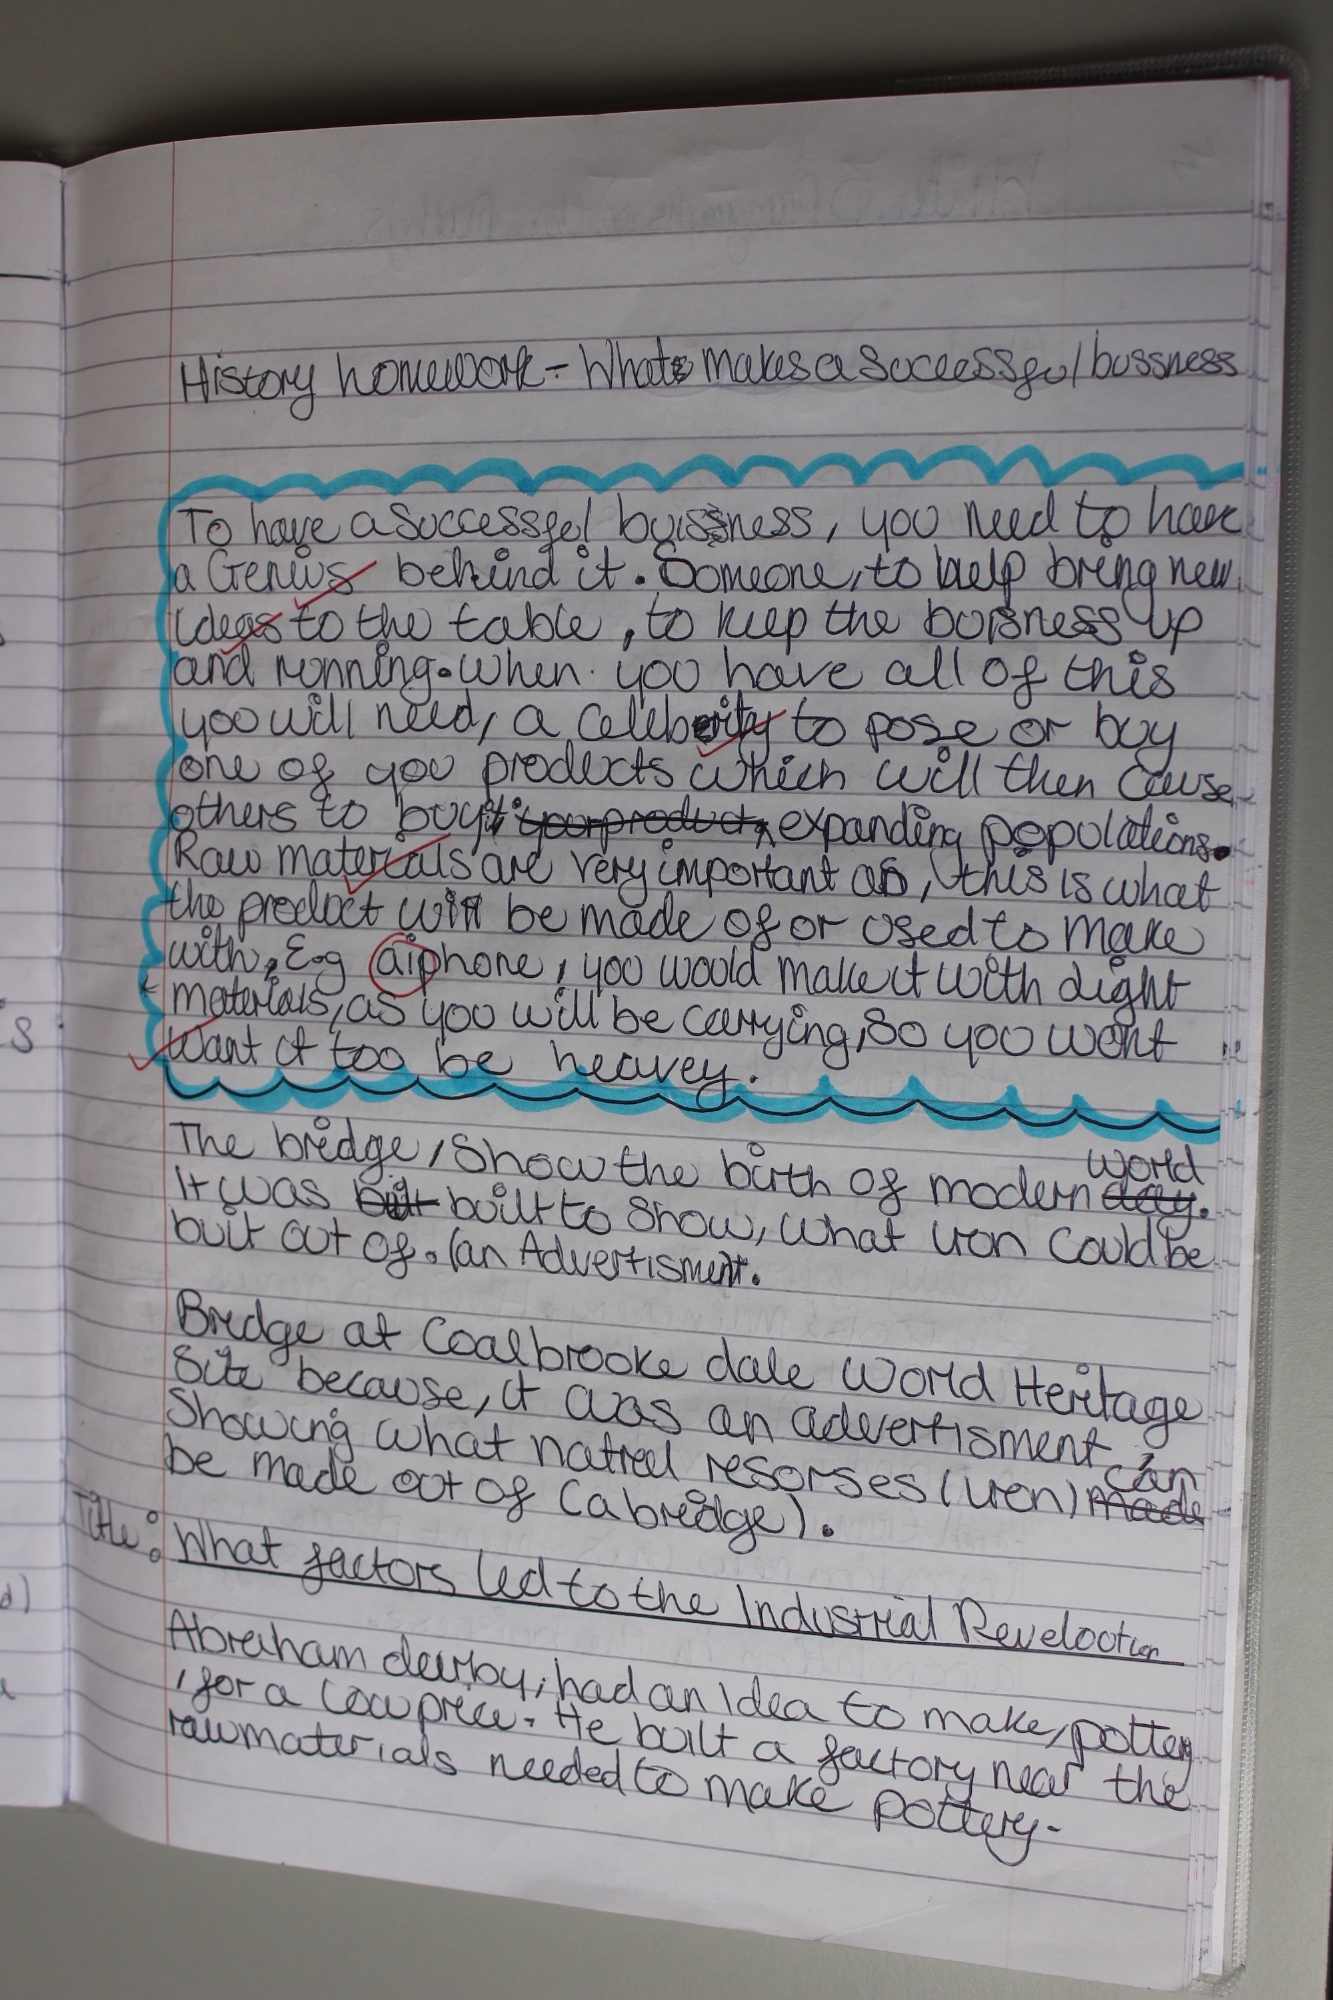 History homework - What makes a Successful bussness
To have a Successful buissness, you need to have
a Genius behind it. Someone, to help bring new
ideas to the table, to keep the boisness up
and running. When you have all of this
you will need, a celebrity to pose or buy
one of you products which will then cause
others to buy it expanding populations.
Raw materials are very important as, this is what
the product will be made of or used to make
with, E.g aiphone, you would make it with light
materials, as you will be carrying, so you wont
want it too be heavey.
The bridge, Show the birth of modern world
It was built to show, what iron could be
buit out of. (an Advertisment.
Bredge at Coalbrooke dale World Heritage
Site because, it was an advertisment
Showing what natrel resorses (iron) can
be made out of (a bredge).
Title: What factors led to the Industrial Revelootion
Abraham dearby, had an idea to make, pottery
, for a low price. He built a factory near the
raw materials needed to make pottery.